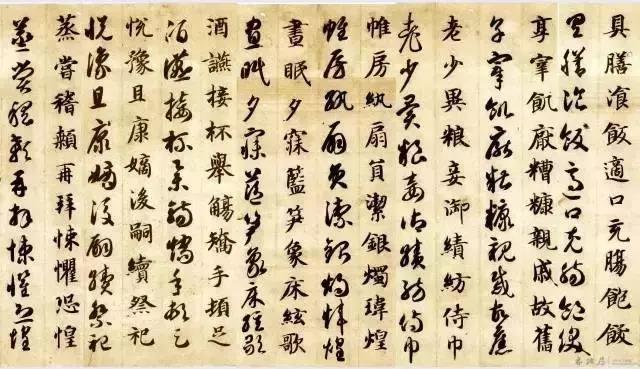 具膳飡飯適口充腸飽飫
具膳飡飯適口充腸飽飫
享宰飢厭糟糠親戚故舊
享宰飢厭糟糠親戚故舊
老少異粮妾御績紡侍巾
老少異粮妾御績紡侍巾
帷房紈扇員潔銀燭瑋煌
帷房紈扇員潔銀燭瑋煌
晝眠夕寐藍笋象床絃歌
晝眠夕寐藍笋象床絃歌
酒讌接杯舉觴矯手頓足
酒讌接杯舉觴矯手頓足
悅豫且康嫡後嗣續祭祀
悅豫且康嫡後嗣續祭祀
蒸嘗稽顙再拜悚懼恐惶
蒸嘗稽顙再拜悚懼恐惶